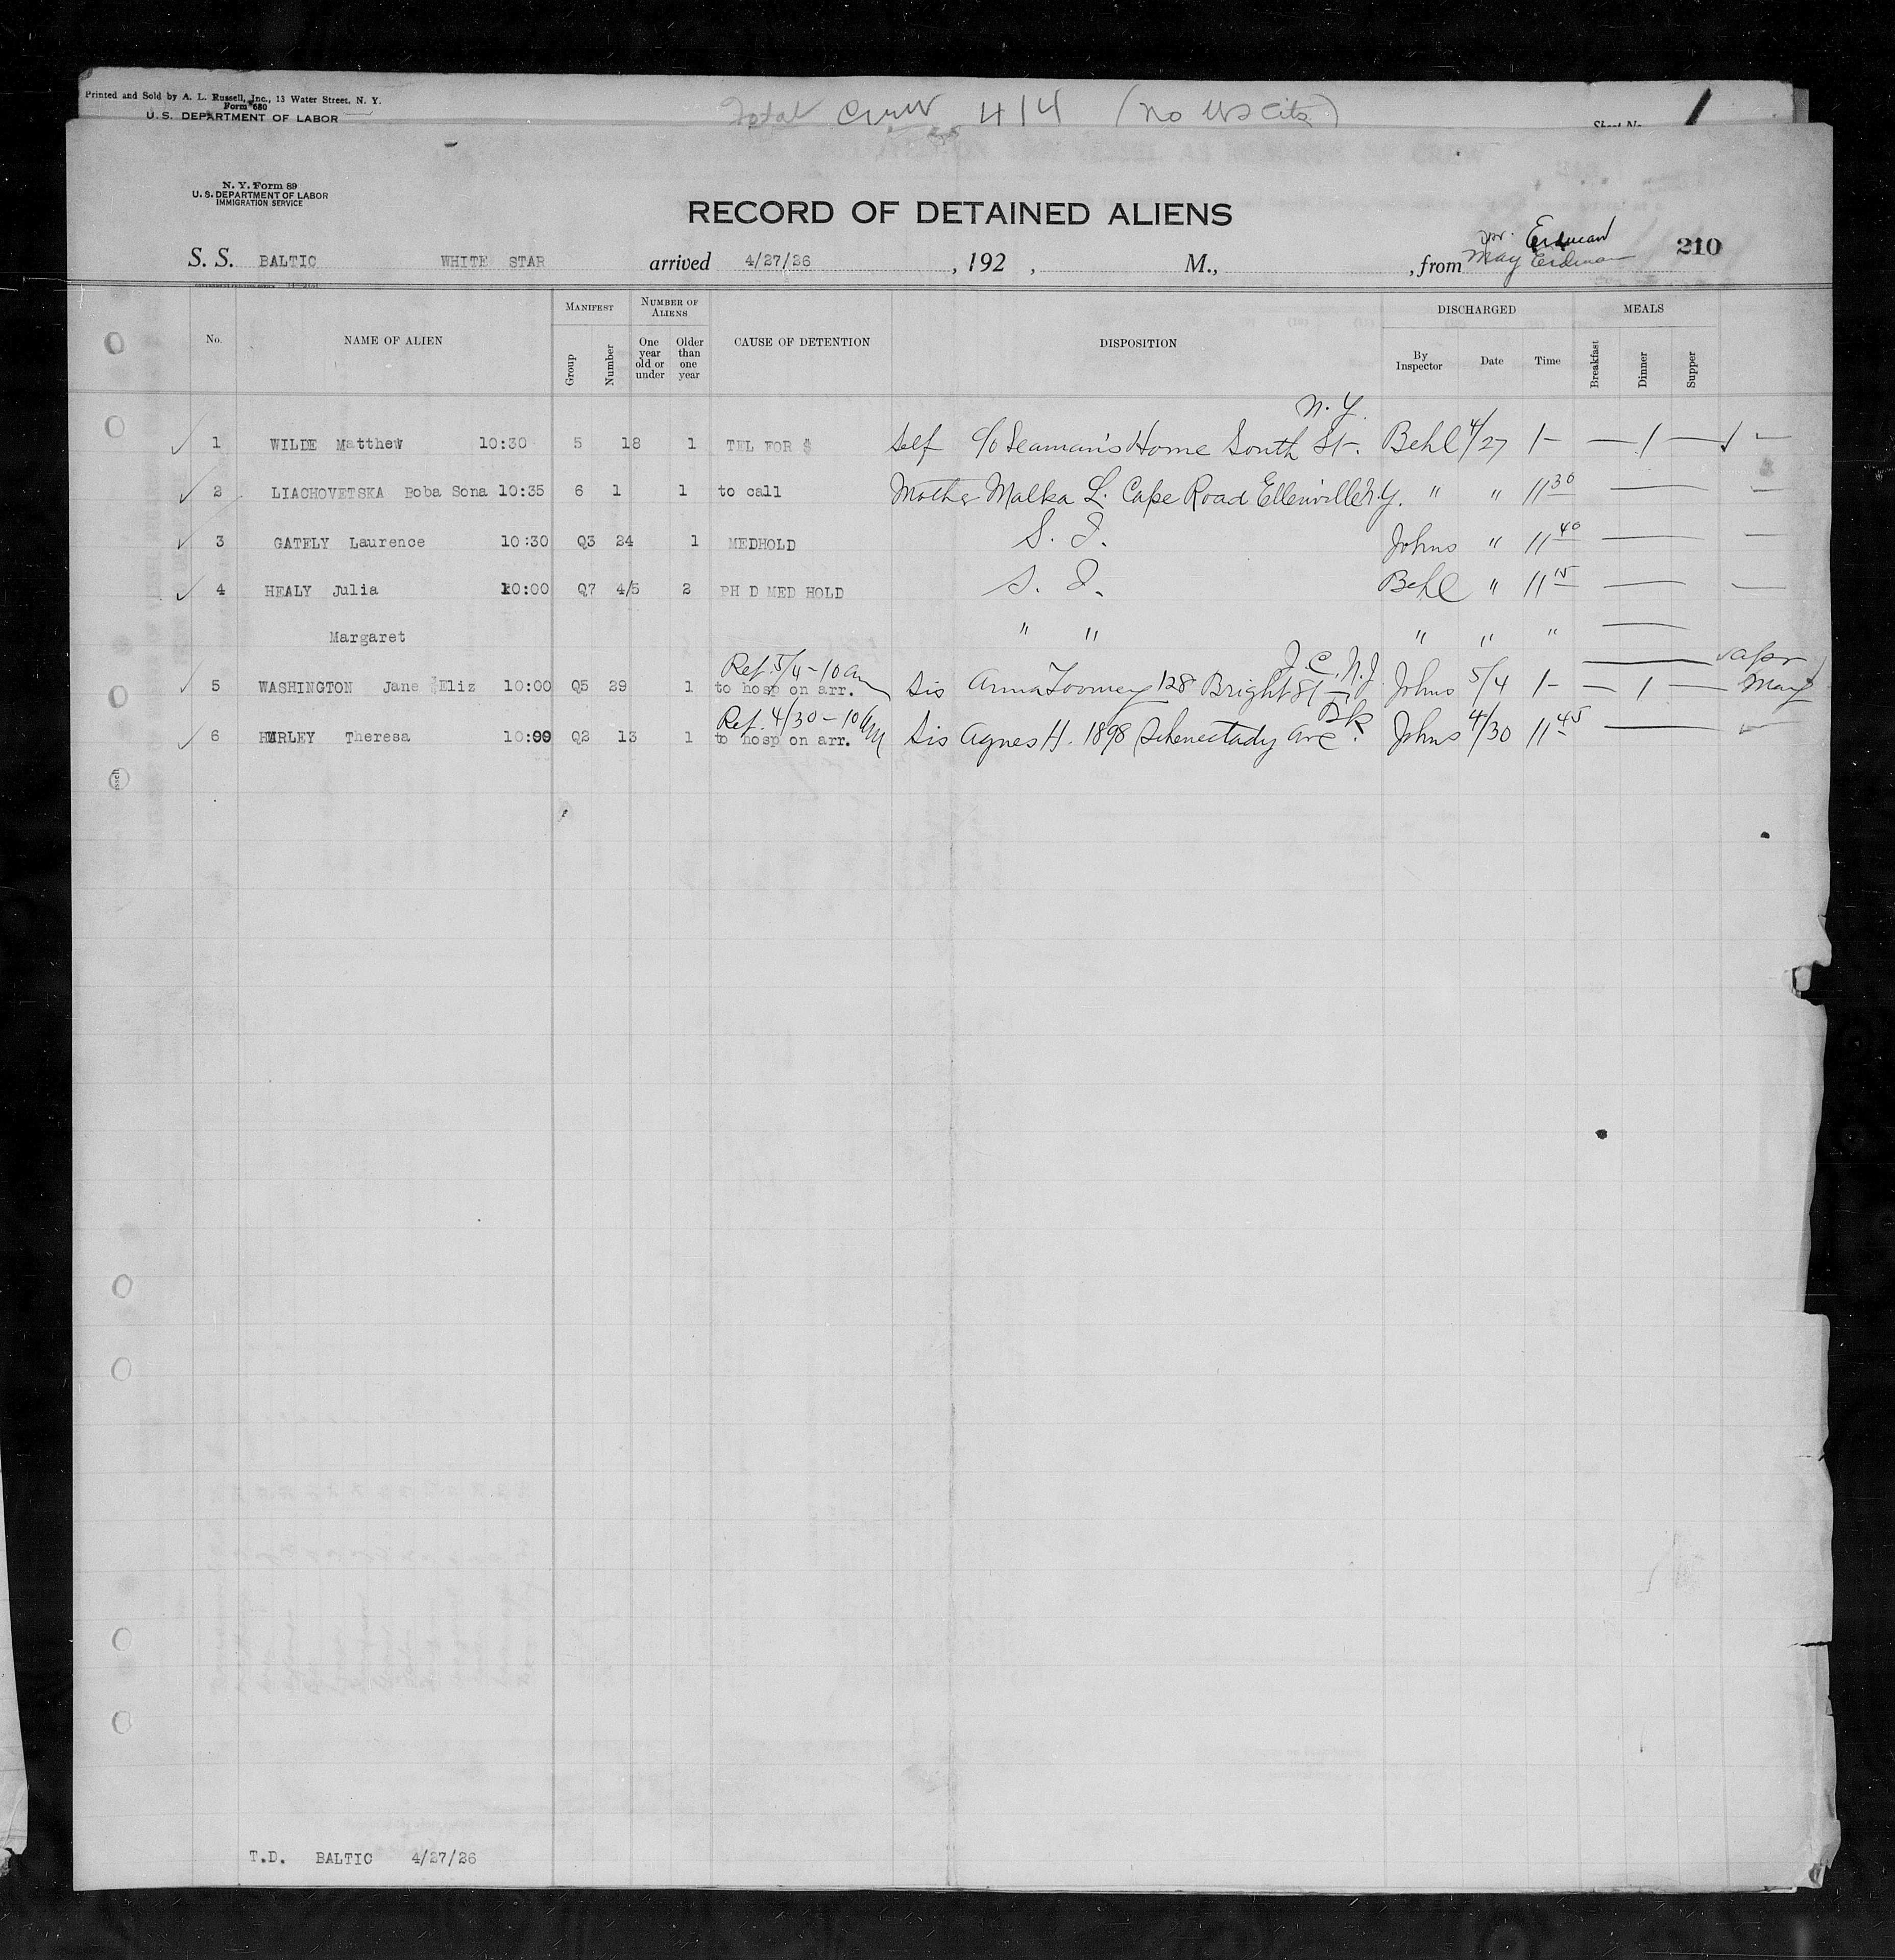 Printed and Sold by A. L. Russell, Inc., 13 Water Street, N. Y.
Form 680
U. S. DEPARTMENT OF LABOR
Total Crew 414 (No US Citz)
Sheet No. 1
N. Y. Form 89
U. S. DEPARTMENT OF LABOR
IMMIGRATION SERVICE
RECORD OF DETAINED ALIENS
210
Apr. Erdman
May Erdman
S. S. BALTIC WHITE STAR arrived 4/27/26, 192 , M., , from
No. NAME OF ALIEN MANIFEST Group Number NUMBER OF ALIENS One year old or under Older than one year CAUSE OF DETENTION DISPOSITION DISCHARGED By Inspector Date Time MEALS Breakfast Dinner Supper
N. Y.
1 WILDE Matthew 10:30 5 18 1 TEL FOR $ Self c/o Seaman's Home South St. Behl 4/27 1- — 1 —
2 LIACHOVETSKA Boba Sona 10:35 6 1 1 to call Mother Malka L. Cape Road Ellenville N.Y. " " 11 30
3 GATELY Laurence 10:30 Q3 24 1 MEDHOLD S. I. Johns " 11 40
4 HEALY Julia 10:00 Q7 4/5 2 PH D MED HOLD S. I. Behl " 11 15
Margaret " " " " "
Ref. 5/4 - 10 am J.C., N.J. Apr
5 WASHINGTON Jane Eliz 10:00 Q5 29 1 to hosp on arr. Sis Anna Toomey 128 Bright St Johns 5/4 1- — 1 — May
Ref. 4/30 - 10 AM Bk
6 HURLEY Theresa 10:00 Q2 13 1 to hosp on arr. Sis Agnes H. 1898 Schenectady Ave. Johns 4/30 11 45
T.D. BALTIC 4/27/26